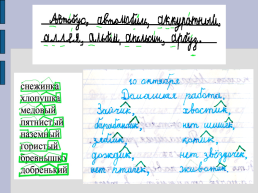 Автобус, автомобиль, аккуратный,
аллея, альбом, апельсин, арбуз.
снежинка
хлопушка
медовый
пятнистый
наземный
гористый
бревнышко
добренький
10 октября
Домашняя работа.
Зайчик, хвостик,
барабанчик, нет шишек,
зубик, котик,
дождик, нет звёздочек,
нет птичек, животик.